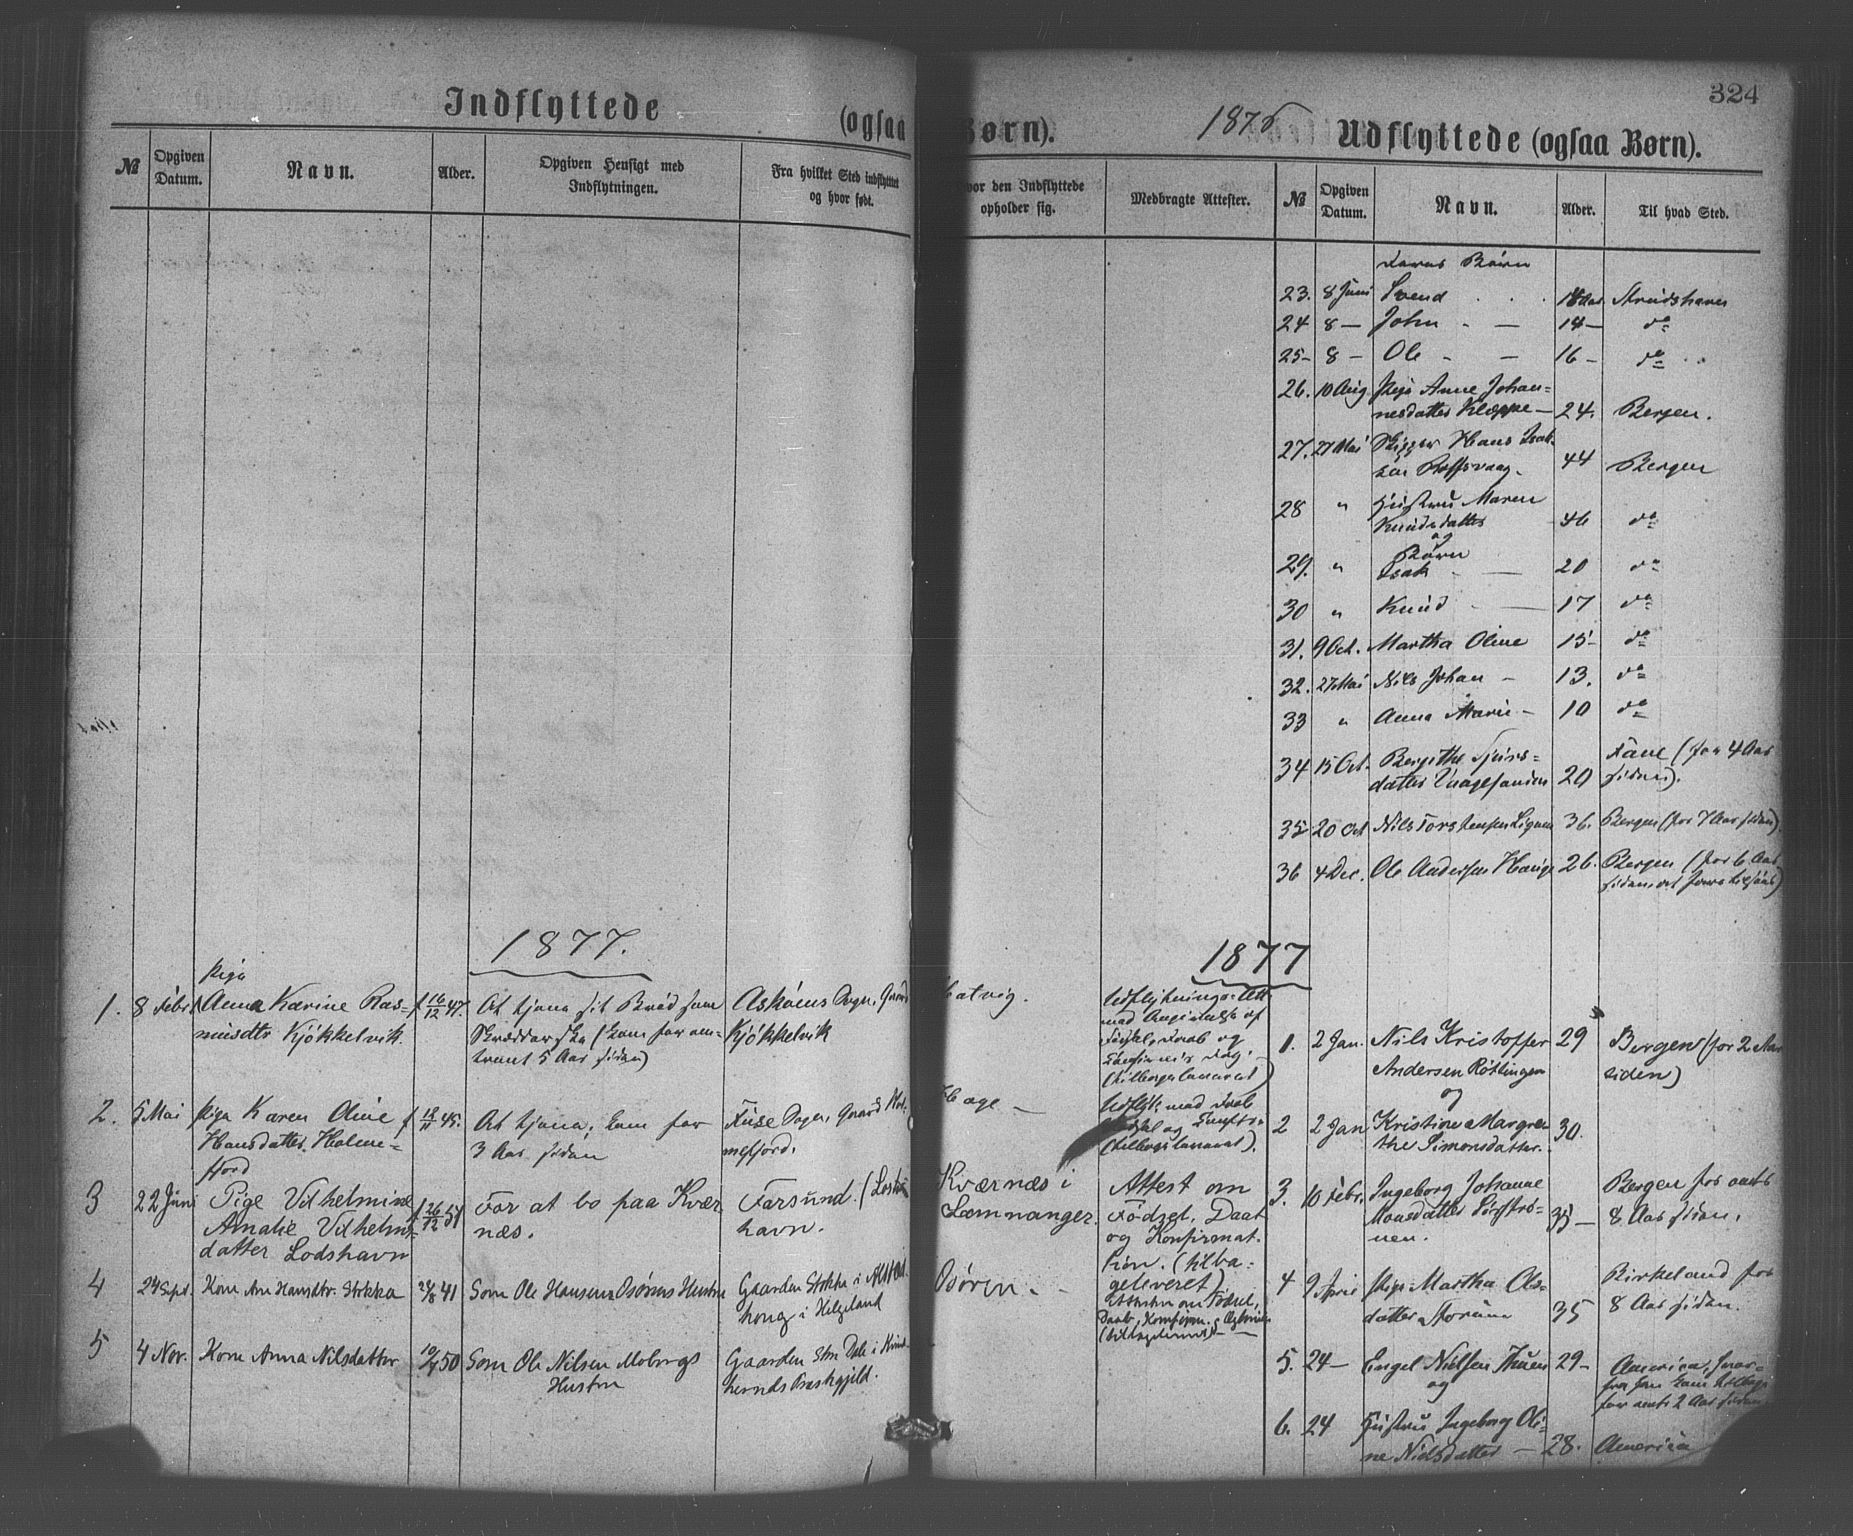 324
Indflyttede (ogsaa Børn).
1876
Udflyttede (ogsaa Børn).
№
Opgiven Datum.
Navn.
Alder.
Opgiven Hensigt med Indflytningen.
Fra hvilket Sted indflyttet og hvor født.
vor den Indflyttede opholder sig.
Medbragte Attester.
№
Opgiven Datum.
Navn.
Alder.
Til hvad Sted.
1877.
Pige
1. 8 Febr. Anna Karine Ras- f 16/12 47. At tjene sit Brød som Askøens Sogn, Gaard Hatvig.
musdtr Kjøkkelvik. (kom for om- Kjøkkelvik
trent 5 Aar siden)
Udflytnings-Att.
med Angivelse af
Daab og
(tilbageleveret)
2. 5 Mai Pige Karen Oline f 18/11 45. At tjene; kom for Fuse Sogn, Gaard Hol- Hage
Hansdatter Holme- 3 Aar siden mefjord.
fjord
Udflytn. med Daab
(tilbageleveret).
3 22 Juni Pige Vilhelmine f 26/12 57 For at bo paa Kvær Farsund. Kværnæs i
Amalie Vilhelms- næs. havn. Samnanger.
datter Lodshavn
Attest om
Fødsel, Daab
og Konfirmat-
tion. (tilba-
geleveret)
4 24 Sept. Kone Ane Hansdtr. Stokka 41 Som Ole Hansens Osørens Hustru Gaarden Stokka i Alsta- Osøren.
houg i Helgeland
Attester om Fødsel,
Daab, Konfirm.
5 4 Nov. Kone Anna Nilsdatter 50 Som Ole Nilsen Mobergs Gaarden Dale i Kvind-
Hustru herreds Præstegjeld.
deres Børn
23. 8 Juni Svend Strudshavn
24 8 — John — 14 — do
25 — 8 — Ole — 16 — do
26. 10 Aug. Pige Anne Johan-
nesdatter Kleppe — 24. Bergen.
27. 27 Mai Skipper Hans Isak-
sen Rolfsvaag. 44 Bergen
28 " Hustru Maren
Knudsdatter 46 do
og
Børn
29. " Isak — 20 do
30 " Knud — 17 do
31. 9 Oct. Martha Oline 15 do
32. 27 Mai Nils Johan — 13. do
33 " Anna Marie — 10 do
34 15 Oct. Bergithe Sjurs-
datter Vaagesanden 20 Fane (for 4 Aar
siden).
35 20 Oct Nils Torstensen 36. Bergen (for 7 Aar siden).
36 4 Dec. Ole Andersen Hauge 26. Bergen (for 6 Aar
siden
1877
1. 2 Jan. Nils Kristoffer 29 Bergen (for 2 Aar
Andersen Røttingen siden)
og
2 2 Jan Kristine Margre-
the Simonsdatter. 30.
3. 10 Febr. Ingeborg Johanne Bergen for omtr.
Monsdatter 33 — 8 Aar siden.
nen.
4 9 April Pige Martha Ols- Birkeland for
datter 35 8 Aar siden.
5. 24 — Engel Nielsen Thuen 29 — America, hvor-
og fra han kom tilbage
for omtr. 2 Aar siden
6. 24 Hustru Ingeborg Oli-
ne Nielsdatter — 28. America